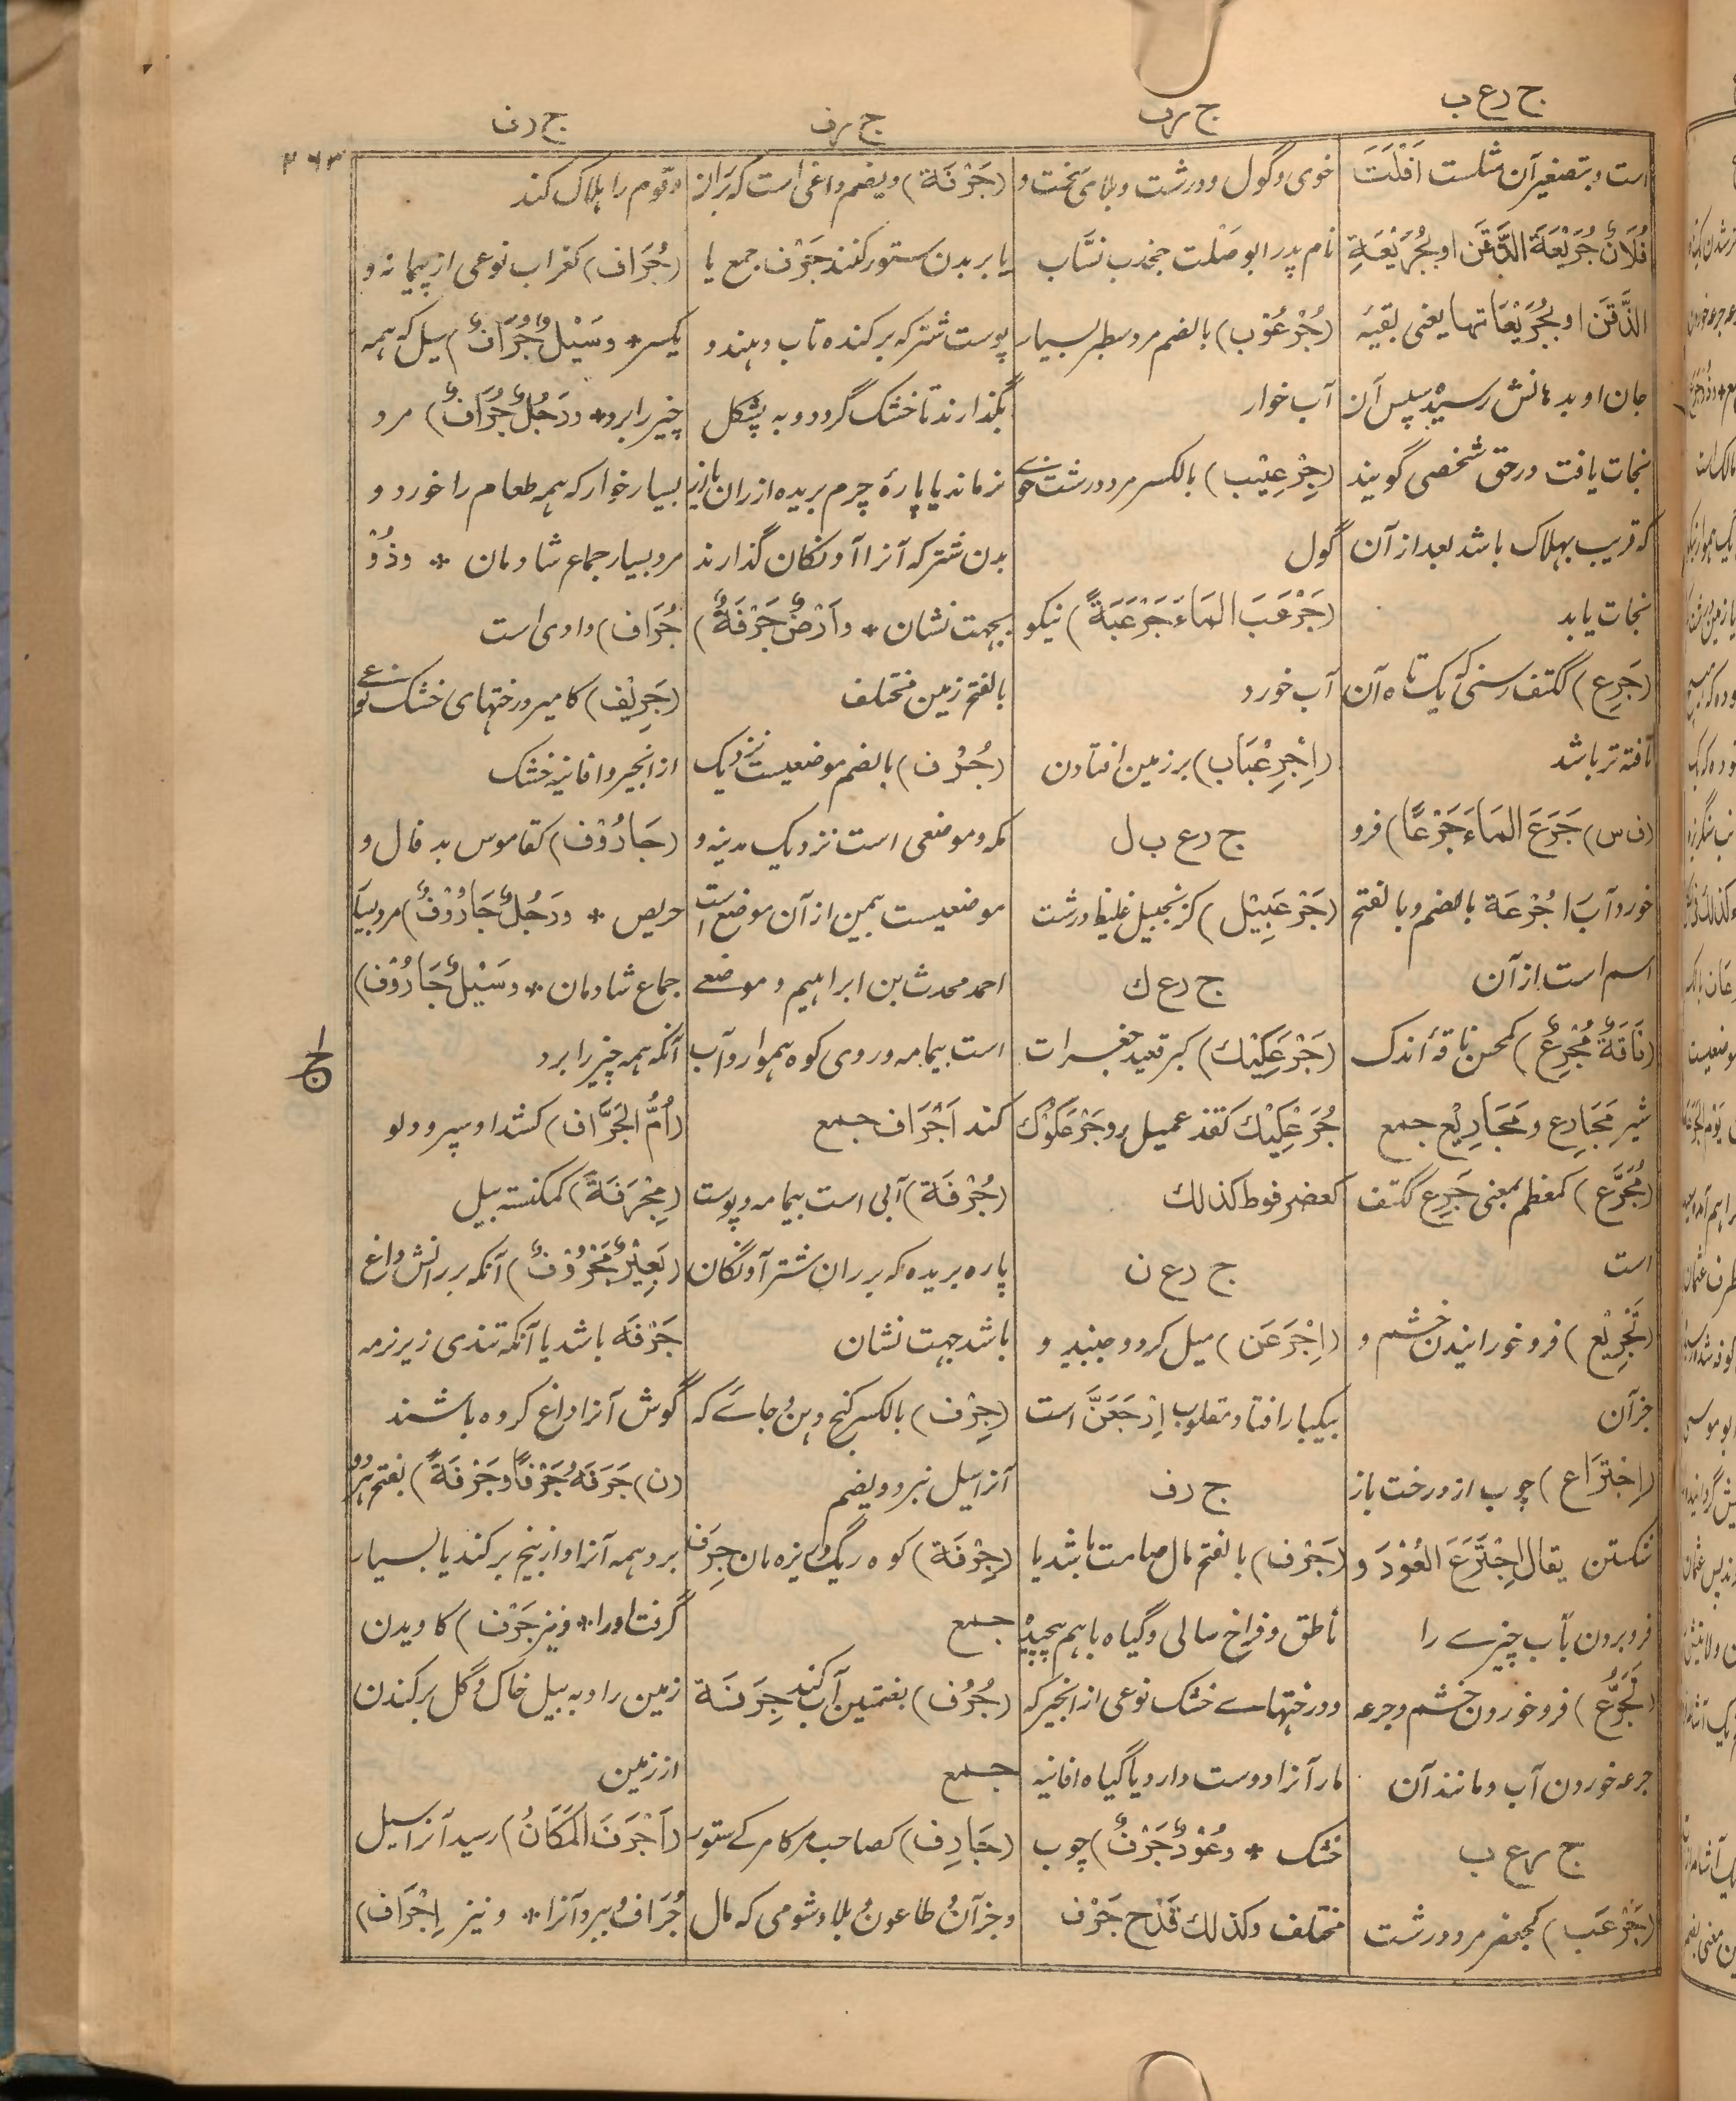 ج رع ب
ج رف
ج رف
ج رف
۲۶۳
است وبتصغیر آن مثلست اَفْلَتَ
فُلَانٌ جُرَيْعَةَ الذَّقَن او بِجُرَيْعَةِ
الذَّقَن او بِجُرَيْعَاتها یعنی بقیهٔ
جان او بدهانش رسید سپس آن
نجات یافت در حق شخصی گویند
که قریب بهلاک باشد بعد از آن
نجات یابد
(جَرِع) ککتف رسنی که یک تاه آن
تافته تر باشد
(ف س) جَرَعَ المَاءَ جَرْعًا) فرو
خورد آب را جُرْعَة بالضم وبالفتح
اسم است از آن
(نَاقَةٌ مُجْرِعٌ) کمحسن ناقهٔ اندک
شیر مَجَارِع و مَجَارِيْع جمع
(مُجَرَّع) کمعظم بمعنی جَرِع ککتف
است
(تَجْرِيْع) فرو خورانیدن خشم و
جزآن
(اِجْتِرَاع) چوب از درخت باز
شکستن یقال اِجْتَرَعَ العُوْدَ و
فرو بردن بآب چیزے را
(تَجَرُّع) فرو خوردن خشم وجرعه
جرعه خوردن آب ومانند آن
ج رع ب
(جَرْعَب) کجعفر مرد درشت
خوی وگول ودرشت وبلای سخت و
نام پدر ابو صَلْت جخدب نسّاب
(جُرْعُوْب) بالضم مرد سطبر بسیار
آب خوار
(جِرْعِيْب) بالکسر مرد درشت خوے
گول
(جَرْعَبَ المَاءَ جَرْعَبَةً) نیکو
آب خورد
(اِجْرِعْبَاب) بر زمین افتادن
ج رع ب ل
(جَرْعَبِيْل) کزنجبیل غلیظ درشت
ج رع ك
(جَرْعَكِيْك) کبرقعید جغرات
جُرَعْكِيْك کقذعمیل وجَرْعَكُوْك
کعضرفوط كذلك
ج رع ن
(اِجْرَعَن) میل کرد وجنبید و
بیکبار افتاد ومقلوب اِرْجَعَنَّ است
ج رف
(جَرْف) بالفتح مال صامت باشد یا
ناطق وفراخ سالی وگیاه باهم پیچیده
ودرختهاے خشک نوعی از انجیر که
مار آنرا دوست دارد یا گیاه افانیه
خشک * وعُوْدٌ جَرْفٌ) چوب
مختلف وكذلك قَدَح جَرْف
(جَرْفَة) ویضم داغی است که بر ران
یا بر بدن ستور کنند جَرْف جمع یا
پوست شتر که برکنده تاب دهند و
بگذارند تا خشک گردد و به پشکل
نزماند یا پارهٔ چرم بریده از ران یا از
بدن شتر که آنرا آونگان گذارند
بجهت نشان * واَرْضٌ جَرْفَةٌ)
بالفتح زمین مختلف
(جُرْف) بالضم موضعیست نزدیک
مکه وموضعی است نزدیک مدینه و
موضعیست بیمن از آن موضع است
احمد محدث بن ابراهیم و موضعے
است بیمامه وروی کوه هموار وآب
کند اَجْرَاف جمع
(جُرْفَة) آبی است بیمامه وپوست
پاره بریده که بر ران شتر آونگان
باشد جهت نشان
(جِرْف) بالکسر کنج دهن وجائے که
آنرا سیل نبرد ویضم
(جِرْفَة) کوه ریگ وریزه نان جِرَف
جمع
(جُرُف) بضمتین آب کند جِرَفَة
جمع
(جَارِف) کصاحب مرگامرگے ستور
وجزآن وطاعون وبلا وشومی که مال
وقوم را هلاک کند
(جُرَاف) کغراب نوعی از پیمانه و
یکسر * وسَيْلٌ جُرَافٌ) سیل که همه
چیز را برد * ورَجُلٌ جُرَافٌ) مرد
بسیار خوار که همه طعام را خورد و
مرد بسیار جماع شادمان * وذُوْ
جُرَاف) وادی است
(جَرِيْف) کامیر درختهای خشک نوعے
از انجیر وافانیه خشک
(جَارُوْف) کقاموس بد فال و
حریص * ورَجُلٌ جَارُوْفٌ) مرد بسیار
جماع شادمان * وسَيْلٌ جَارُوْف)
آنکه همه چیز را برد
(اُمُّ الجَرَّاف) کشداد سپر ودلو
(مِجْرَفَةٌ) کمکنسه بیل
(بَعِيْرٌ مَجْرُوْفٌ) آنکه بر رانش داغ
جَرْفَه باشد یا آنکه تندی زیر نرمه
گوش آنرا داغ کرده باشند
(ن) جَرَفَهُ جَرْفًا وجَرْفَةً) بفتح هر دو
برد همه آنرا واز بیخ برکند یا بسیار
گرفت اورا * ونیز جَرْف) کاویدن
زمین را وبه بیل خاک وگل برکندن
از زمین
(اَجْرَفَ المَكَانُ) رسید آنرا سیل
جُرَاف وببرد آنرا * ونیز اِجْرَاف)